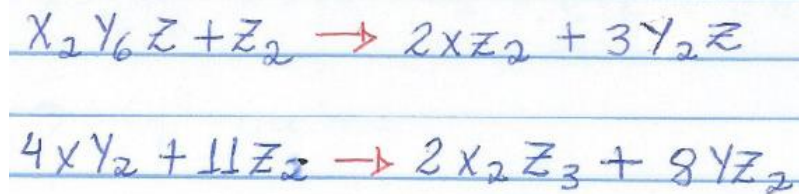 X₂Y₆Z + Z₂ → 2XZ₂ + 3Y₂Z
4XY₂ + 11Z₂ → 2X₂Z₃ + 8YZ₂